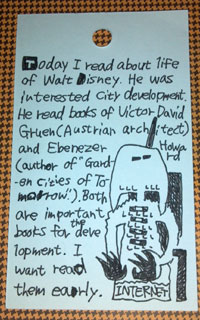 Today I read about life
of Walt Disney. He was
interested City development.
He read books of Victor David
Gruen (Austrian architect)
and Ebenezer Howard
(author of "Gard
-en cities of To
morrow"). Both
are important
the
books for deve
lopment. I
want read
them earrly.
INTERNET